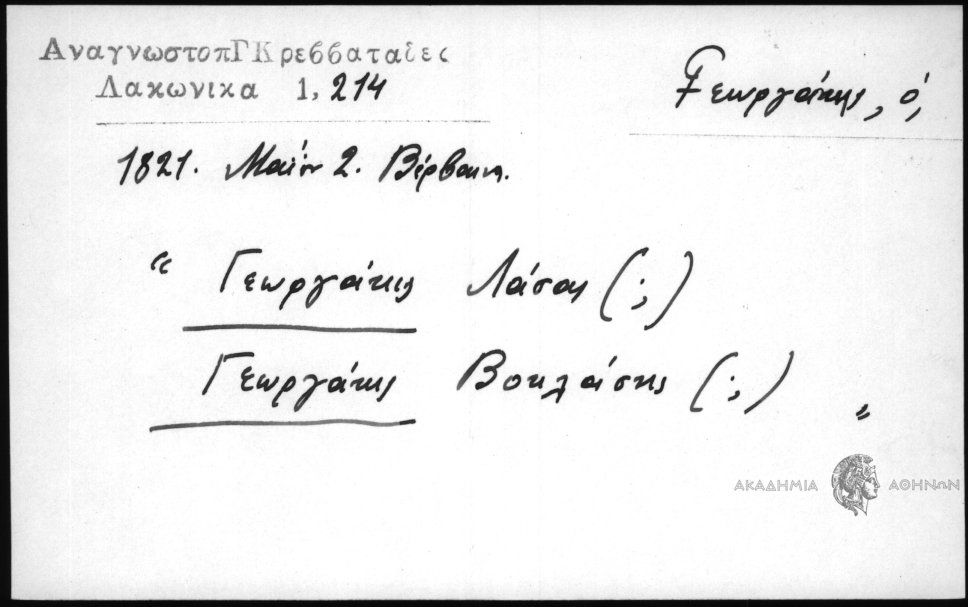 ΑναγνωστοπΓΚρεββαταδες
Λακωνικα 1, 214
Γεωργάκης, ὁ,
1821. Μαΐου 2. Βέρβαινα.
“ Γεωργάκης Λάσας (;)
Γεωργάκης Βοκλάσης (;) „
ΑΚΑΔΗΜΙΑ ΑΘΗΝΩΝ